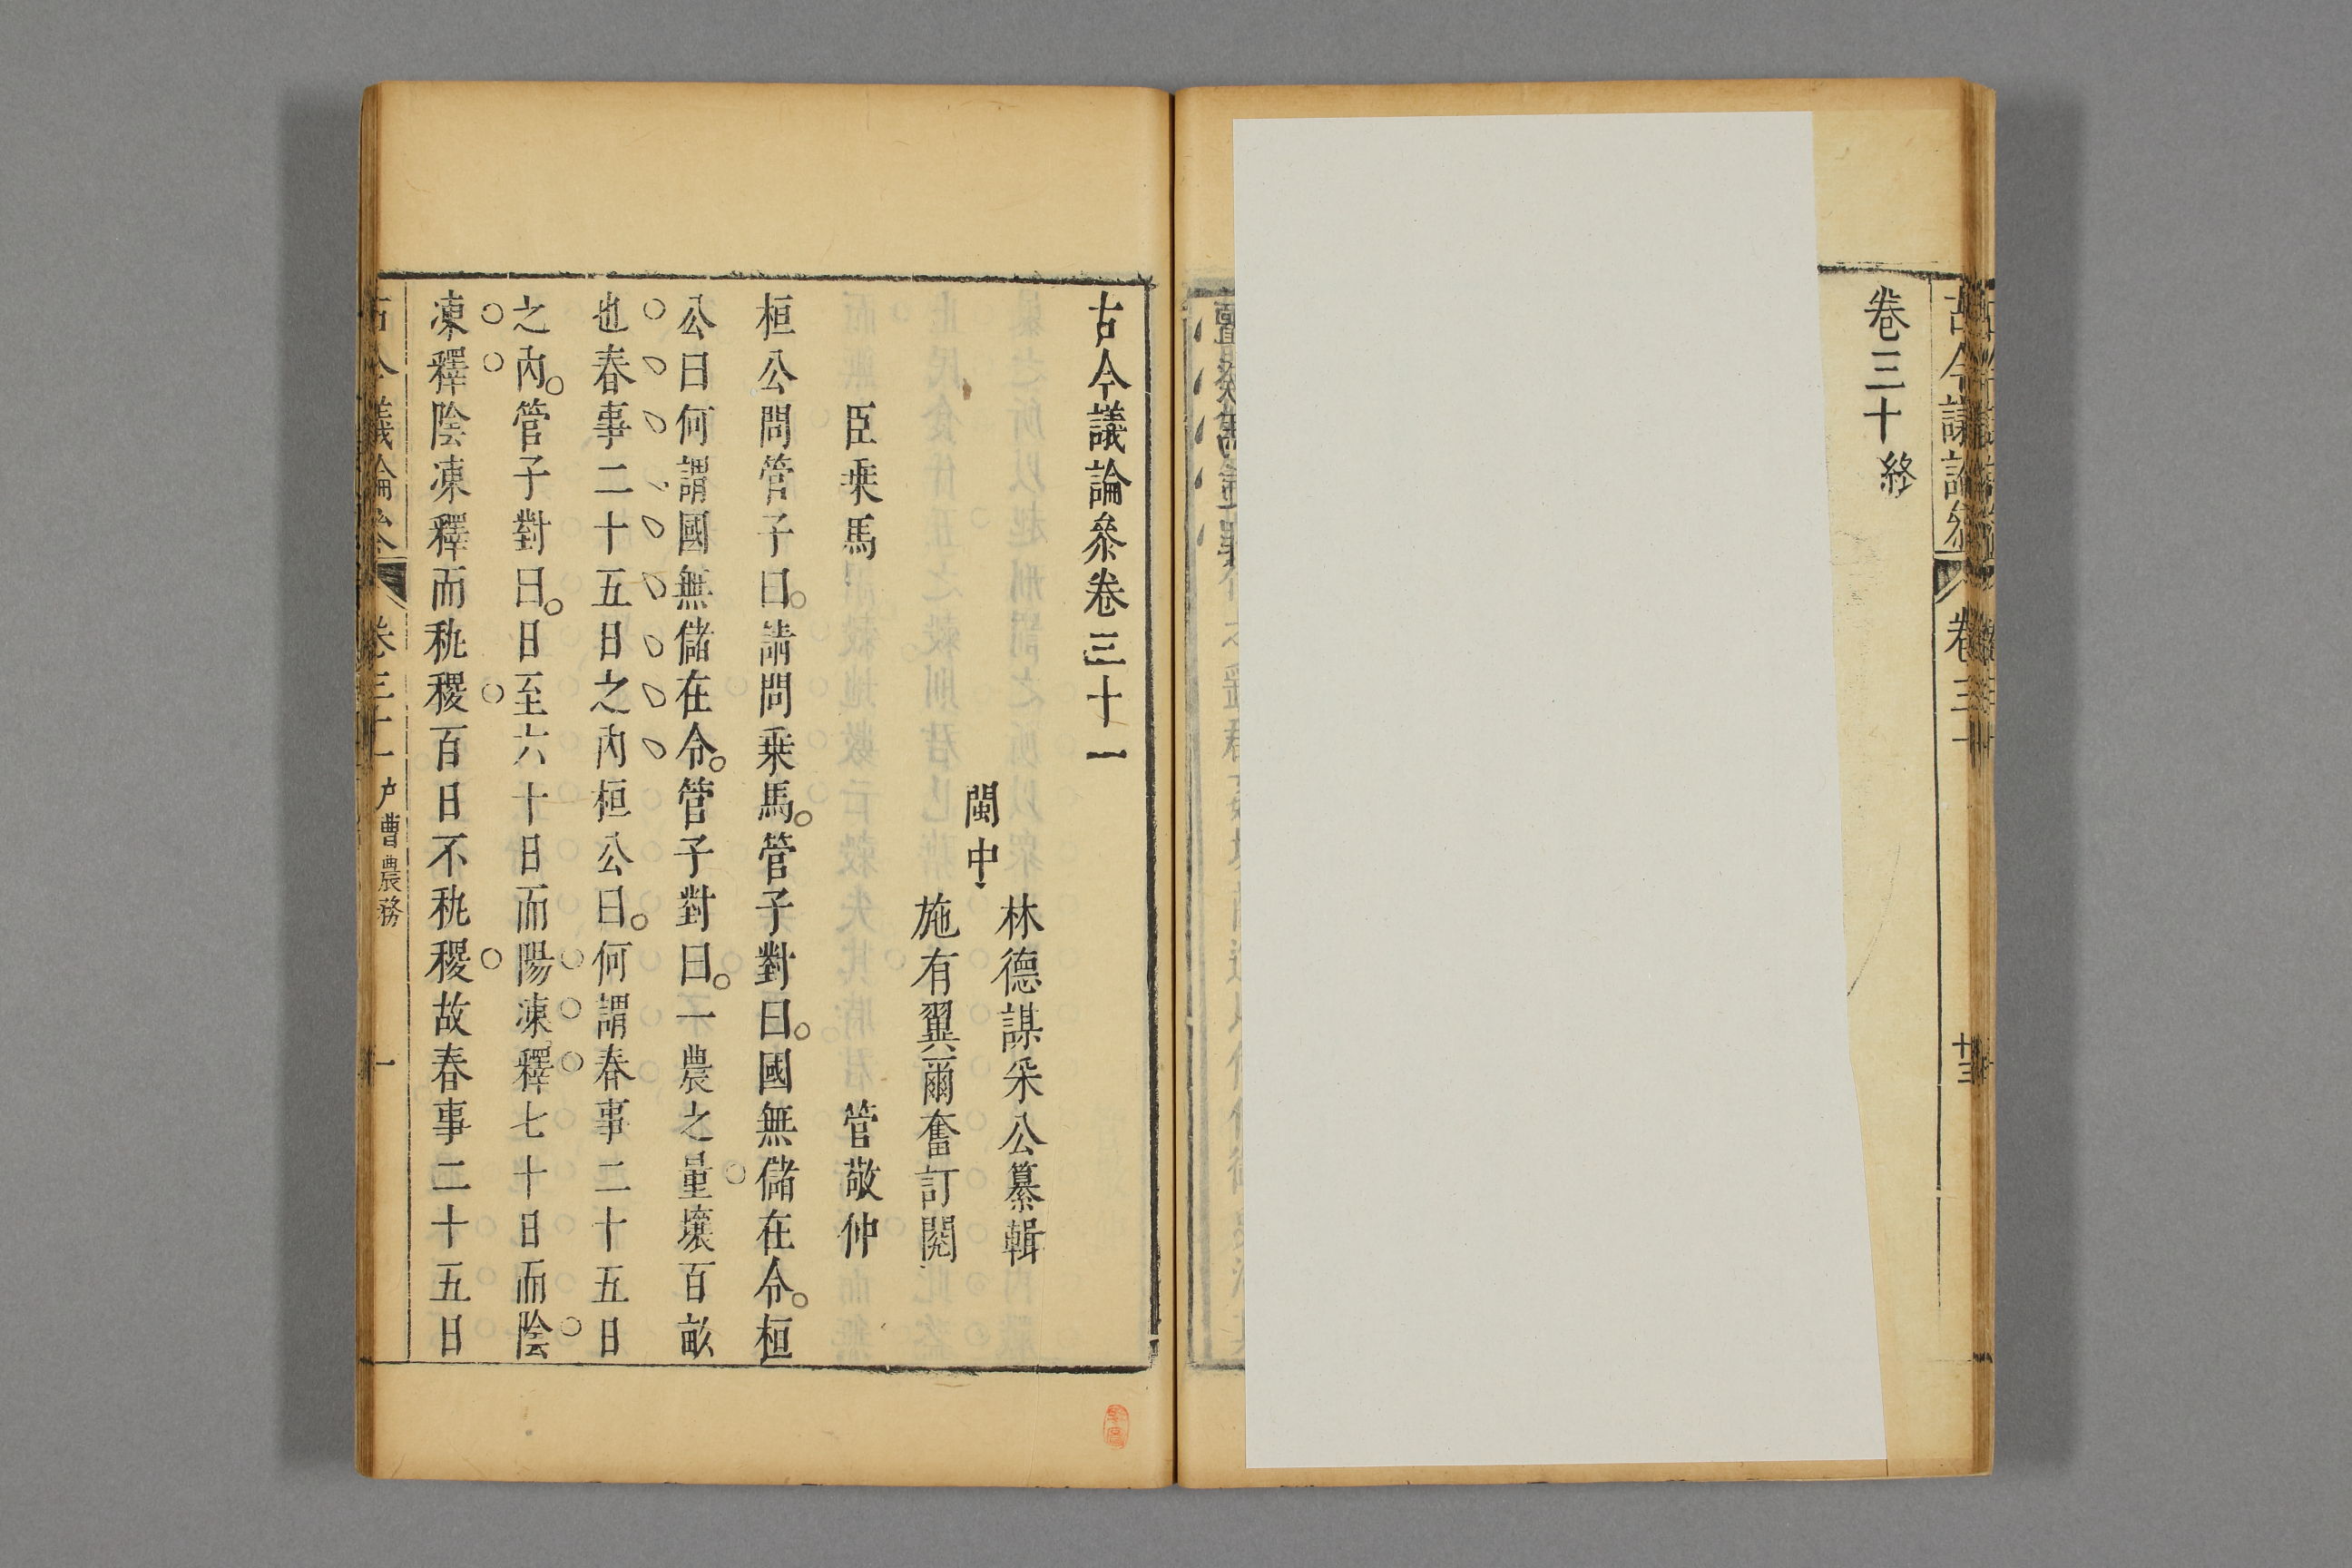 卷三十終
古今議論叅卷三十一
閩中
林德謀采公纂輯
施有翼爾奮訂閱
臣乗馬　管敬仲
桓公問管子曰。請問乗馬。管子對曰。國無儲在令。桓
公曰何謂國無儲在令。管子對曰。一農之量壤百畝
也春事二十五日之内桓公曰。何謂春事二十五日
之内。管子對曰。日至六十日而陽凍釋七十日而陰
凍釋陰凍釋而秇稷百日不秇稷故春事二十五日
卷三十一
户曹農務
一